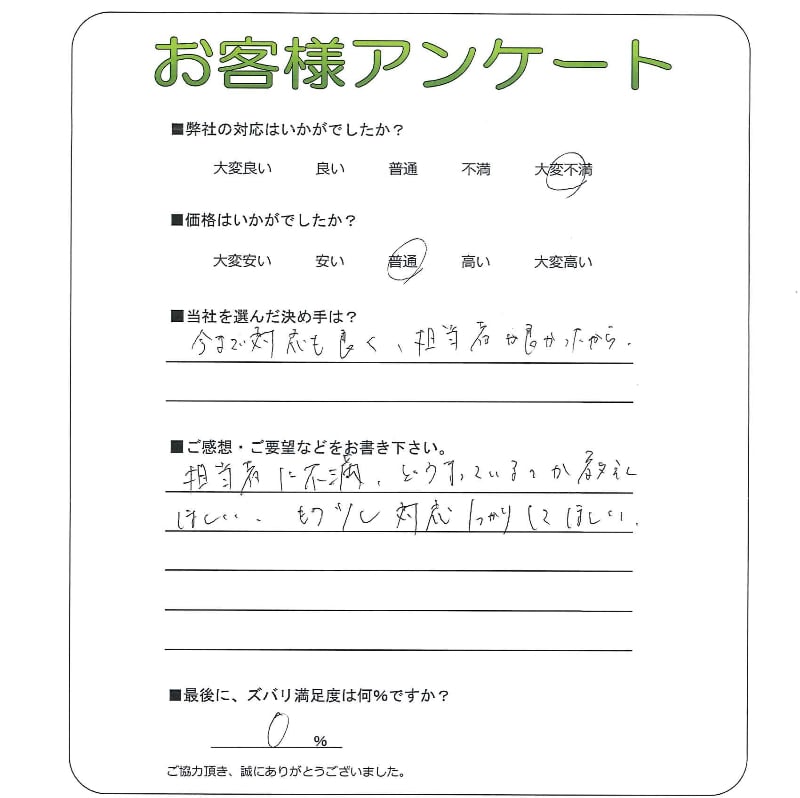 お客様アンケート
■弊社の対応はいかがでしたか？
大変良い 良い 普通 不満 大変不満
■価格はいかがでしたか？
大変安い 安い 普通 高い 大変高い
■当社を選んだ決め手は？
今まで対応も良く、担当者が良かったから.
■ご感想・ご要望などをお書き下さい。
担当者に不満、どうなっているのか教えて
ほしい、もう少し対応しっかりしてほしい.
■最後に、ズバリ満足度は何%ですか？
0 %
ご協力頂き、誠にありがとうございました。